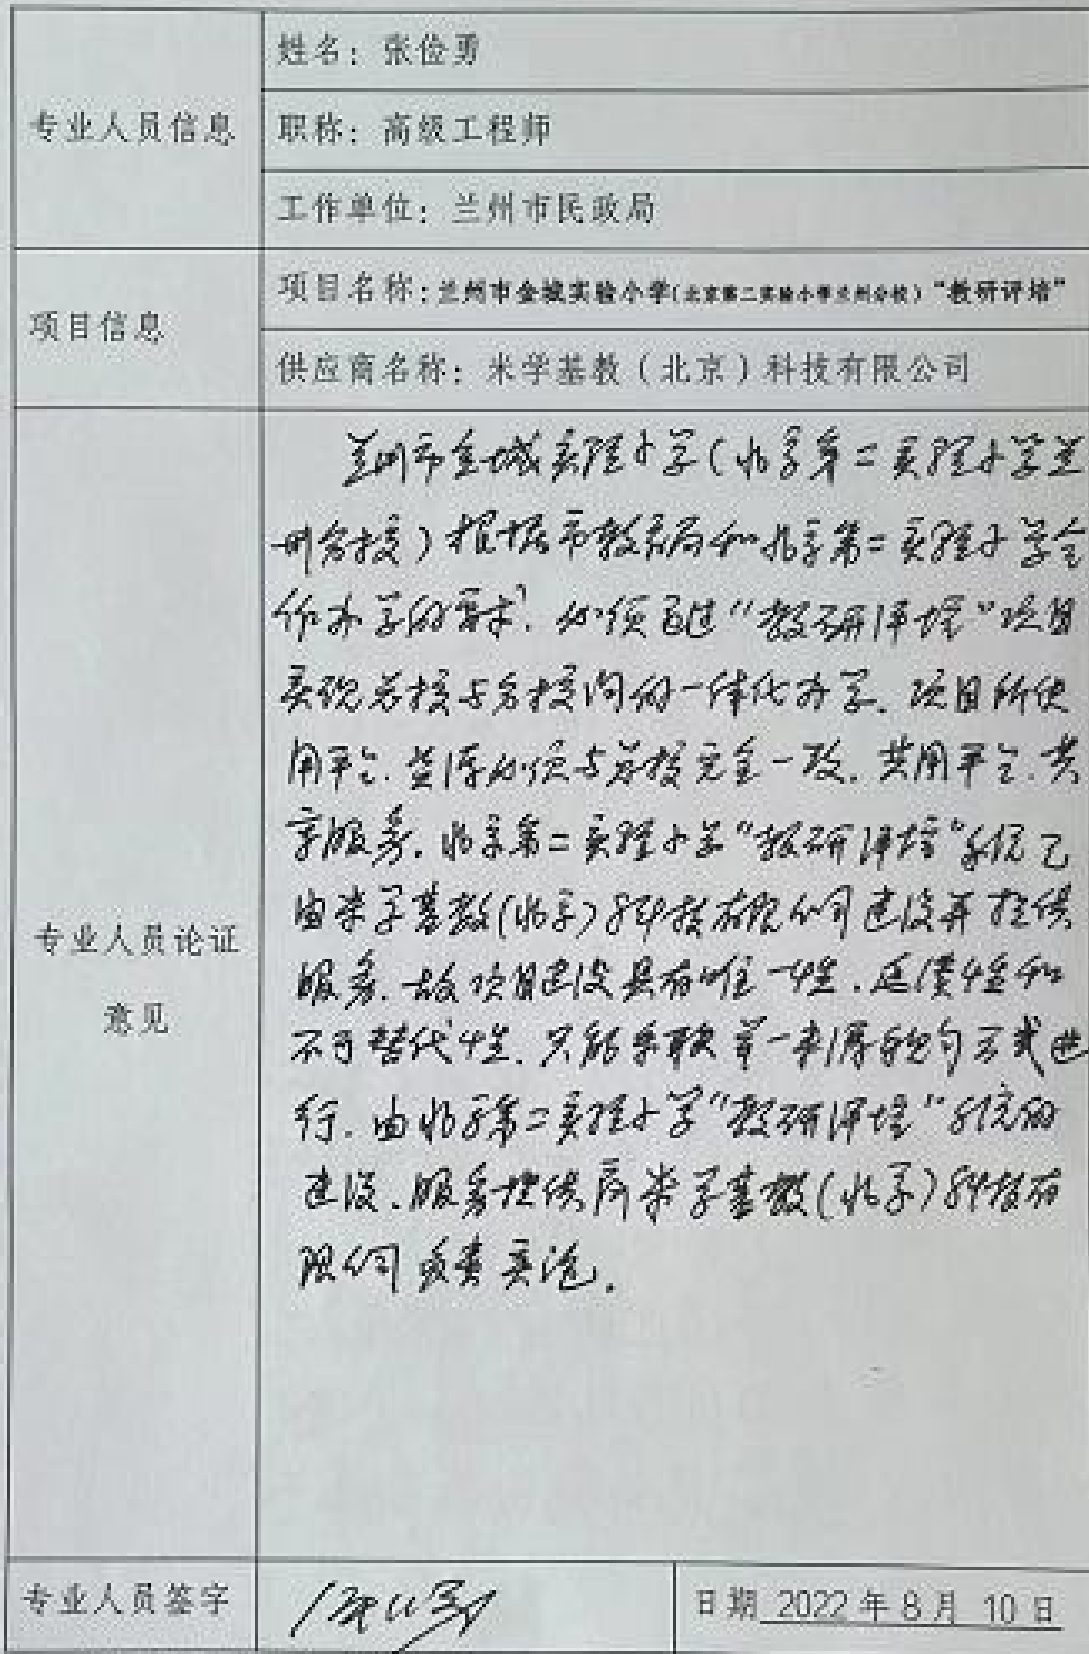 专业人员信息
姓名：张俭勇
职称：高级工程师
工作单位：兰州市民政局
项目信息
项目名称：兰州市金城实验小学(北京第二实验小学兰州分校)“教研评培”
供应商名称：米学基教（北京）科技有限公司
专业人员论证
意见
兰州市金城实验小学(北京第二实验小学兰
州分校)根据市教育局和北京第二实验小学合
作办学的需求，必须通过“教研评培”项目
实现总校与分校间的一体化办学。项目所使
用平台、资源必须与总校完全一致，共用平台、共
享服务。北京第二实验小学“教研评培”系统已
由米学基教(北京)科技有限公司建设并提供
服务，故项目建设具有唯一性、延续性和
不可替代性，只能采取单一来源采购方式进
行，由北京第二实验小学“教研评培”系统的
建设、服务提供商米学基教(北京)科技有
限公司负责实施。
专业人员签字
日期 2022 年 8 月 10 日